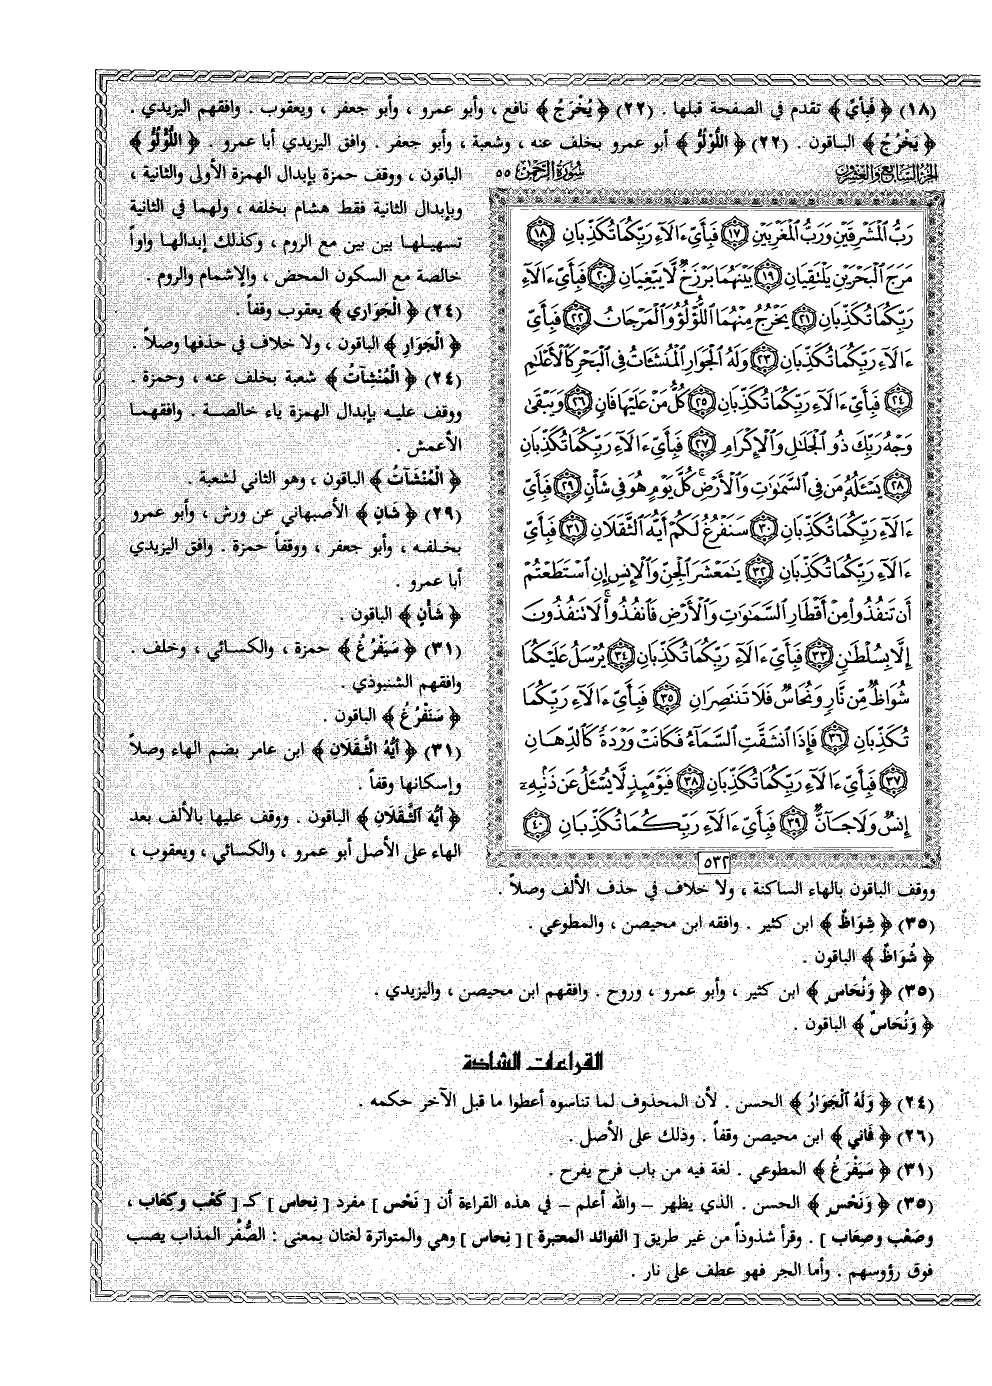 (١٨) ﴿ فَبِأَيِّ ﴾ تقدم في الصفحة قبلها . (٢٢) ﴿ يُخْرَجُ ﴾ نافع ، وأبو عمرو ، وأبو جعفر ، ويعقوب . وافقهم اليزيدي .
﴿ يَخْرُجُ ﴾ الباقون . (٢٢) ﴿ اللُّوْلُؤُ ﴾ أبو عمرو بخلف عنه ، وشعبة ، وأبو جعفر . وافق اليزيدي أبا عمرو . ﴿ اللُّؤْلُؤُ ﴾
الباقون ، ووقف حمزة بإبدال الهمزة الأولى والثانية ،
وبإبدال الثانية فقط هشام بخلفه ، ولهما في الثانية
تسهيلها بين بين مع الروم ، وكذلك إبدالها واواً
خالصة مع السكون المحض ، والإشمام والروم .
(٢٤) ﴿ الْجَوَارِي ﴾ يعقوب وقفاً .
﴿ الْجَوَارِ ﴾ الباقون ، ولا خلاف في حذفها وصلاً .
(٢٤) ﴿ الْمُنْشِآتُ ﴾ شعبة بخلف عنه ، وحمزة .
ووقف عليه بإبدال الهمزة ياء خالصة . وافقهما
الأعمش .
﴿ الْمُنْشَآتُ ﴾ الباقون ، وهو الثاني لشعبة .
(٢٩) ﴿ شَانٍ ﴾ الأصبهاني عن ورش ، وأبو عمرو
بخلفه ، وأبو جعفر ، ووقفاً حمزة . وافق اليزيدي
أبا عمرو .
﴿ شَأْنٍ ﴾ الباقون .
(٣١) ﴿ سَيَفْرُغُ ﴾ حمزة ، والكسائي ، وخلف .
وافقهم الشنبوذي .
﴿ سَنَفْرُغُ ﴾ الباقون .
(٣١) ﴿ أَيُّهُ الثَّقَلَانِ ﴾ ابن عامر بضم الهاء وصلاً
وإسكانها وقفاً .
﴿ أَيُّهَ الثَّقَلَانِ ﴾ الباقون . ووقف عليها بالألف بعد
الهاء على الأصل أبو عمرو ، والكسائي ، ويعقوب ،
الجزء السابع والعشرون
سورة الرحمن ٥٥
رَبُّ الْمَشْرِقَيْنِ وَرَبُّ الْمَغْرِبَيْنِ ١٧ فَبِأَيِّ ءَالَاءِ رَبِّكُمَا تُكَذِّبَانِ ١٨
مَرَجَ الْبَحْرَيْنِ يَلْتَقِيَانِ ١٩ بَيْنَهُمَا بَرْزَخٌ لَّا يَبْغِيَانِ ٢٠ فَبِأَيِّ ءَالَاءِ
رَبِّكُمَا تُكَذِّبَانِ ٢١ يَخْرُجُ مِنْهُمَا اللُّؤْلُؤُ وَالْمَرْجَانُ ٢٢ فَبِأَيِّ
ءَالَاءِ رَبِّكُمَا تُكَذِّبَانِ ٢٣ وَلَهُ الْجَوَارِ الْمُنْشَئَاتُ فِي الْبَحْرِ كَالْأَعْلَٰمِ
٢٤ فَبِأَيِّ ءَالَاءِ رَبِّكُمَا تُكَذِّبَانِ ٢٥ كُلُّ مَنْ عَلَيْهَا فَانٍ ٢٦ وَيَبْقَىٰ
وَجْهُ رَبِّكَ ذُو الْجَلَٰلِ وَالْإِكْرَامِ ٢٧ فَبِأَيِّ ءَالَاءِ رَبِّكُمَا تُكَذِّبَانِ
٢٨ يَسْـَٔلُهُ مَن فِي السَّمَٰوَٰتِ وَالْأَرْضِ كُلَّ يَوْمٍ هُوَ فِي شَأْنٍ ٢٩ فَبِأَيِّ
ءَالَاءِ رَبِّكُمَا تُكَذِّبَانِ ٣٠ سَنَفْرُغُ لَكُمْ أَيُّهَ الثَّقَلَانِ ٣١ فَبِأَيِّ
ءَالَاءِ رَبِّكُمَا تُكَذِّبَانِ ٣٢ يَٰمَعْشَرَ الْجِنِّ وَالْإِنسِ إِنِ اسْتَطَعْتُمْ
أَن تَنفُذُوا مِنْ أَقْطَارِ السَّمَٰوَٰتِ وَالْأَرْضِ فَانفُذُوا لَا تَنفُذُونَ
إِلَّا بِسُلْطَٰنٍ ٣٣ فَبِأَيِّ ءَالَاءِ رَبِّكُمَا تُكَذِّبَانِ ٣٤ يُرْسَلُ عَلَيْكُمَا
شُوَاظٌ مِّن نَّارٍ وَنُحَاسٌ فَلَا تَنتَصِرَانِ ٣٥ فَبِأَيِّ ءَالَاءِ رَبِّكُمَا
تُكَذِّبَانِ ٣٦ فَإِذَا انشَقَّتِ السَّمَاءُ فَكَانَتْ وَرْدَةً كَالدِّهَانِ
٣٧ فَبِأَيِّ ءَالَاءِ رَبِّكُمَا تُكَذِّبَانِ ٣٨ فَيَوْمَئِذٍ لَّا يُسْـَٔلُ عَن ذَنۢبِهِۦ
إِنسٌ وَلَا جَانٌّ ٣٩ فَبِأَيِّ ءَالَاءِ رَبِّكُمَا تُكَذِّبَانِ ٤٠
٥٣٢
ووقف الباقون بالهاء الساكنة ، ولا خلاف في حذف الألف وصلاً .
(٣٥) ﴿ شِوَاظٌ ﴾ ابن كثير . وافقه ابن محيصن ، والمطوعي .
﴿ شُوَاظٌ ﴾ الباقون .
(٣٥) ﴿ وَنُحَاسٍ ﴾ ابن كثير ، وأبو عمرو ، وروح . وافقهم ابن محيصن ، واليزيدي .
﴿ وَنُحَاسٌ ﴾ الباقون .
القراءات الشاذة
(٢٤) ﴿ وَلَهُ الْجَوَارُ ﴾ الحسن . لأن المحذوف لما تناسوه أعطوا ما قبل الآخر حكمه .
(٢٦) ﴿ فَانِي ﴾ ابن محيصن وقفاً . وذلك على الأصل .
(٣١) ﴿ سَيَفْرَغُ ﴾ المطوعي . لغة فيه من باب فرح يفرح .
(٣٥) ﴿ وَنَحْسٍ ﴾ الحسن . الذي يظهر – والله أعلم – في هذه القراءة أن [ نَحْس ] مفرد [ نِحاس ] كـ [ كَعْب وكِعَاب ،
وصَعْب وصِعَاب ] . وقرأ شذوذاً من غير طريق [ الفوائد المعتبرة ] [ نِحاس ] وهي والمتواترة لغتان بمعنى : الصُّفْر المذاب يصب
فوق رؤوسهم . وأما الجر فهو عطف على نار .